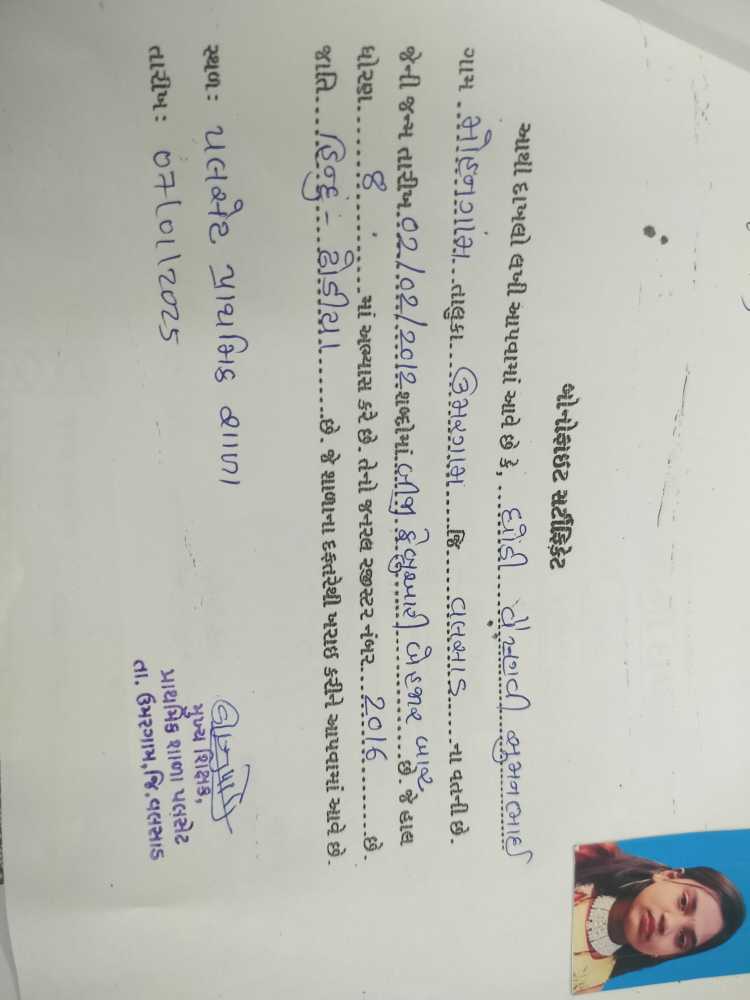 બોનોફાઇટ સર્ટીફિકેટ
આથી દાખલો લખી આપવામાં આવે છે કે, ધોડી વૈષ્ણવી સુમનભાઈ
ગામ મોહનગાંમ તાલુકા ઉમરગામ જિ વલસાડ ના વતની છે.
જેની જન્મ તારીખ 02/02/2012 શબ્દોમાં બીજી ફેબ્રુઆરી બે હજાર બાર છે. જે હાલ
ધોરણ 8 માં અભ્યાસ કરે છે. તેનો જનરલ રજીસ્ટર નંબર 2016 છે.
જાતિ હિન્દુ - ધોડીયા છે. જે શાળાના દફતરેથી ખરાઇ કરીને આપવામાં આવે છે.
સ્થળ: પલસેટ પ્રાથમિક શાળા
તારીખ: 07/01/2025
મુખ્ય શિક્ષક,
પ્રાથમિક શાળા પલસેટ
તા. ઉમરગામ, જિ. વલસાડ